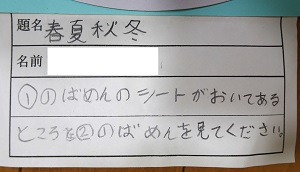 題名 春夏秋冬
名前
①のばめんのシートがおいてある
ところを②のばめんを見てください。